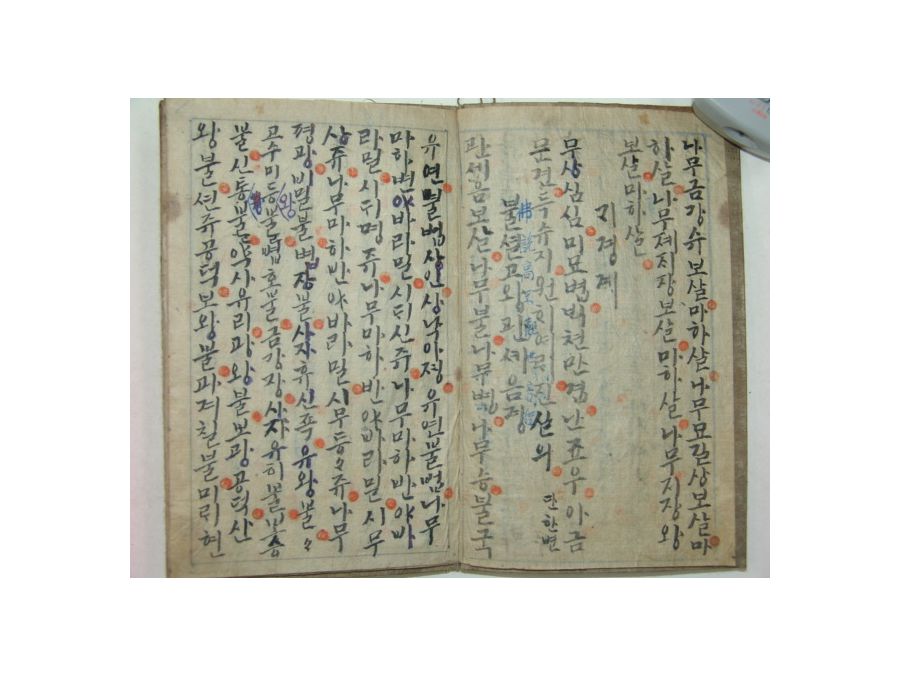 나무금강슈보살마하살나무묘길상보살마
하살나무졔지장보살마하살나무지장왕
보살마하살
기경계
무상심심미묘볍백천만겁난죠우아금
문견득슈지원
단한번
불셜고왕관셰음경
관셰음보살나무불나무볍나무승불국
유연불법상인상낙아졍유연불법나무
마하반야바라밀시대신쥬나무마하반야바
라밀시대명쥬나무마하반야바라밀시무
상쥬나무마하반야바라밀시무등々쥬나무
졍광비밀불볍장불사자휴신죡유왕불々
고수미등불볍호불금강장사자유히불보승
불신통불약사유리광왕불보광공덕산
왕불션쥬공덕보왕불과거칠불미래현